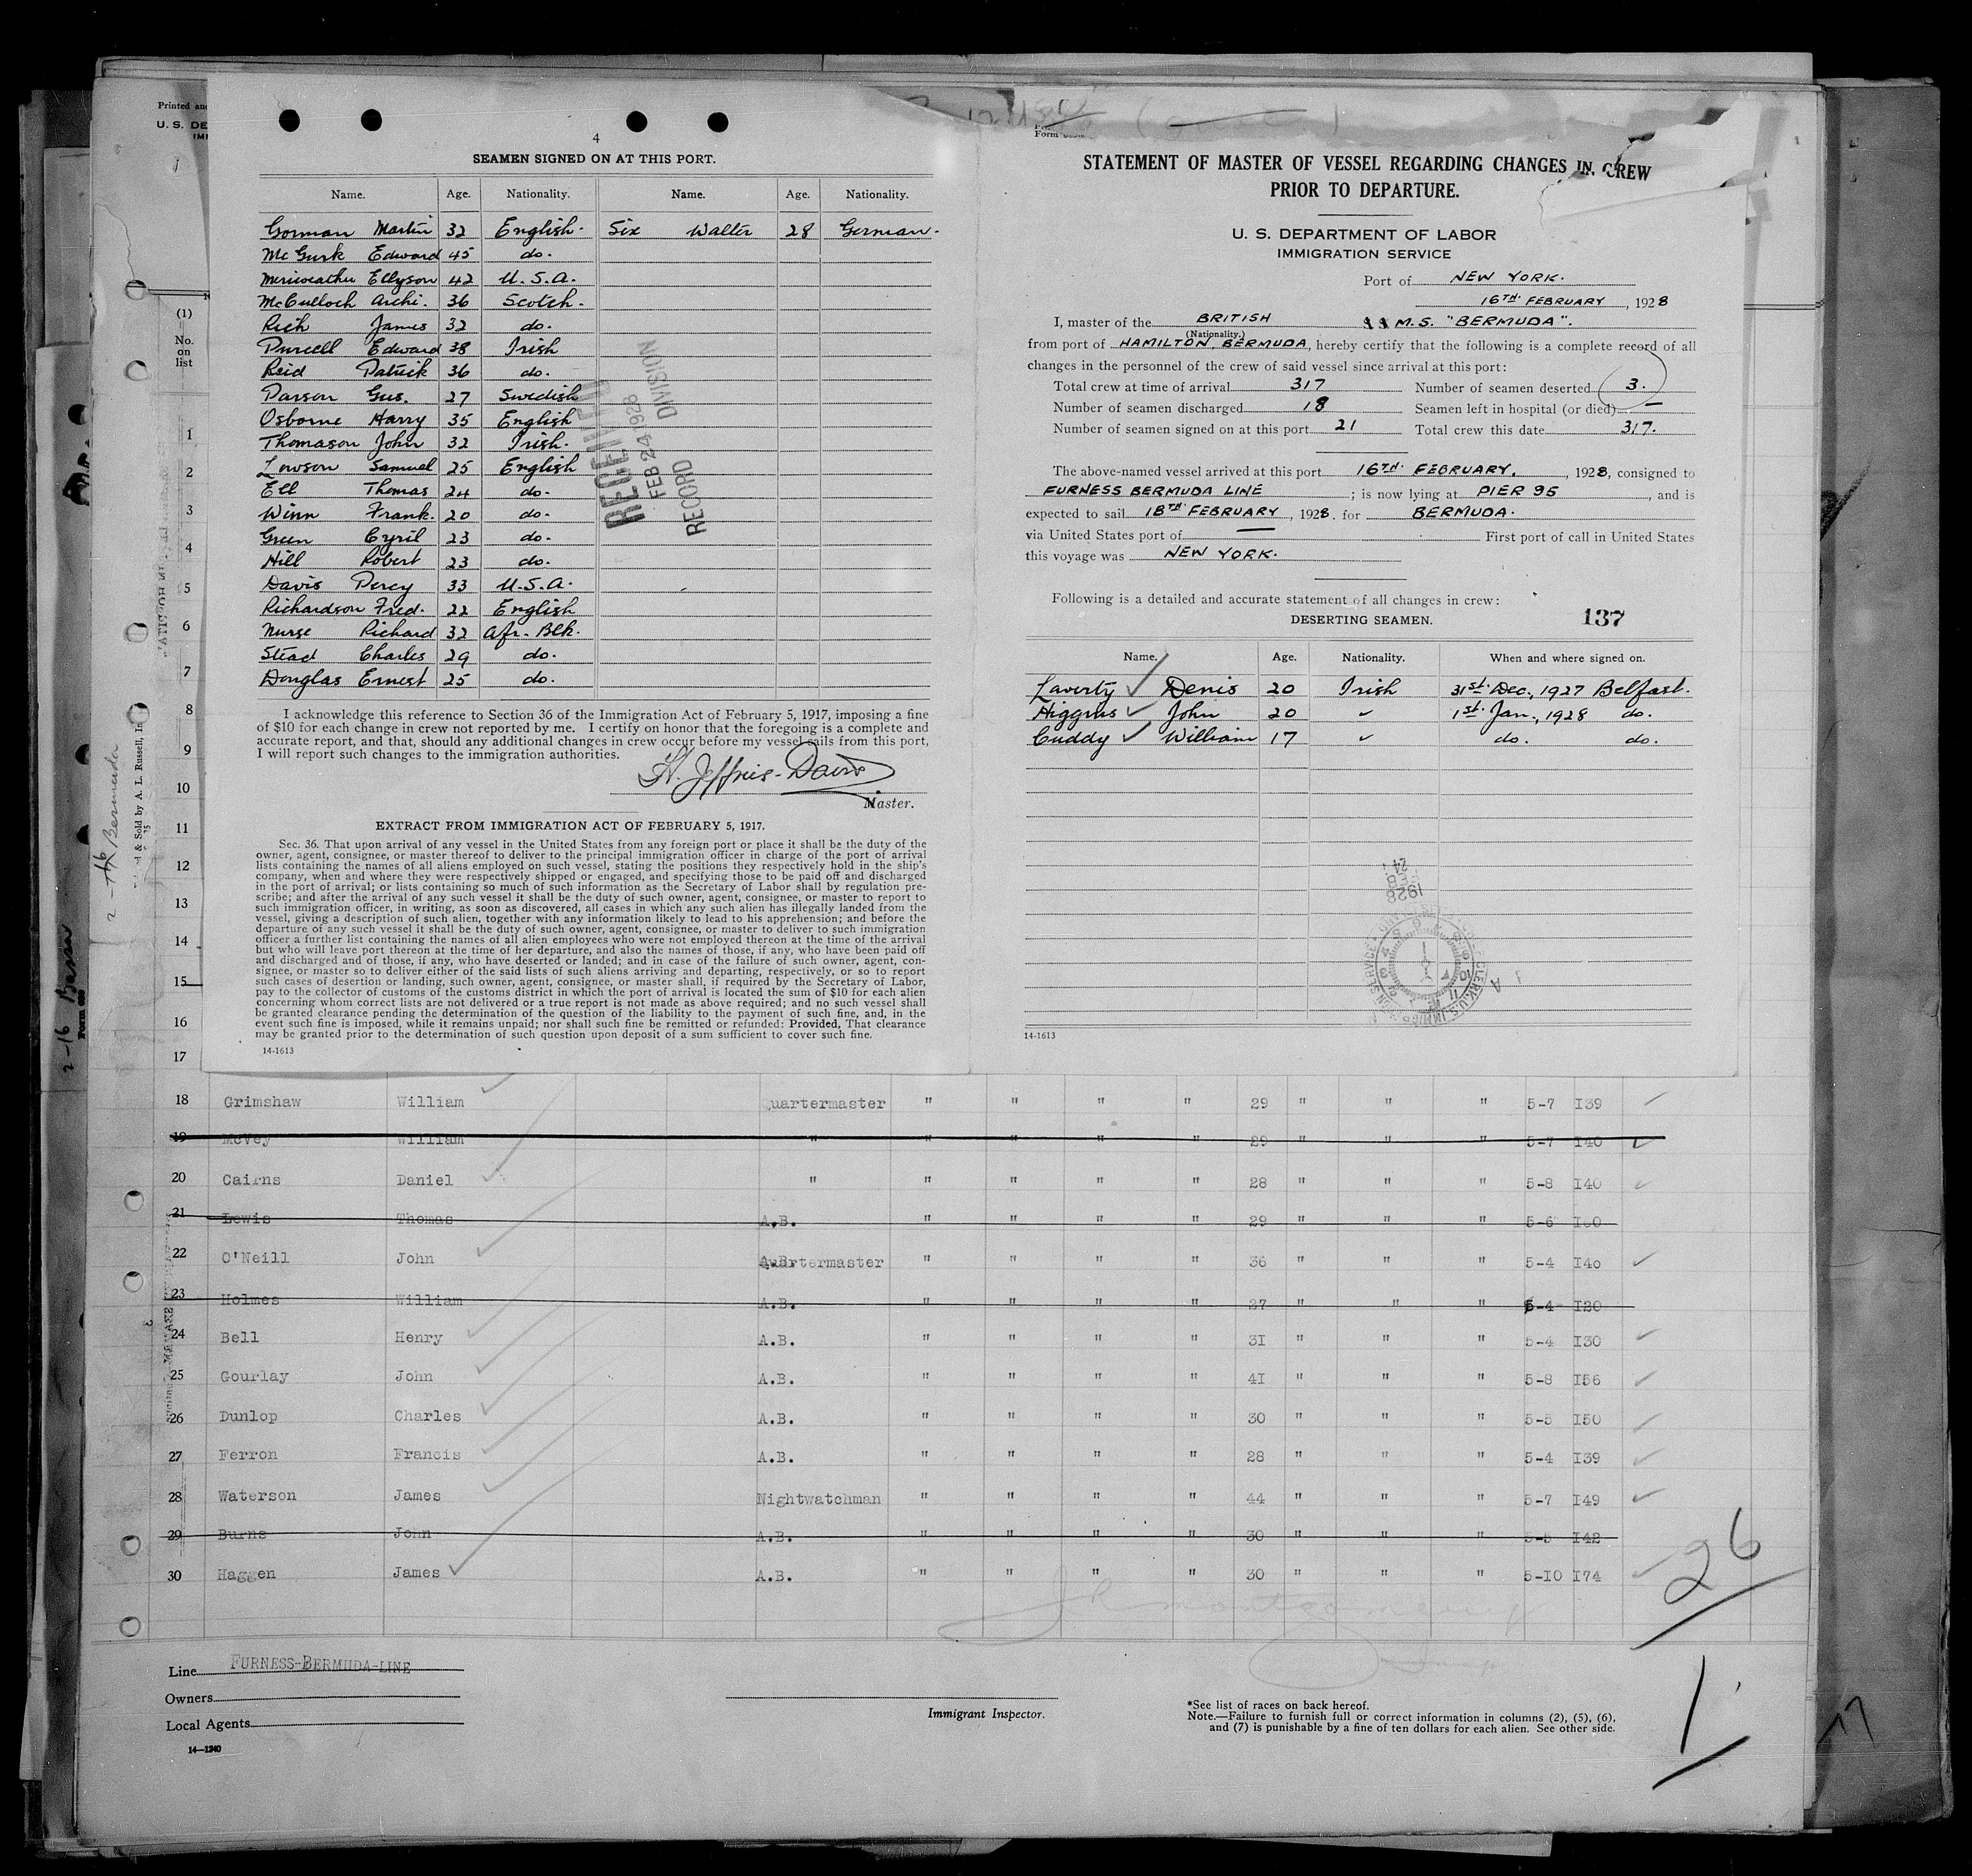 Printed an
U. S. DE
IMI
4
SEAMEN SIGNED ON AT THIS PORT.
Name. Age. Nationality. Name. Age. Nationality.
Gorman Martin 32 English. Six Walter 28 German.
McGurk Edward 45 do.
Meriweather Ellyson 42 U.S.A.
McCulloch Archi. 36 Scotch.
Rich James 32 do.
Purcell Edward 38 Irish
Reid Patrick 36 do.
Parson Gus. 27 Swedish
Osborne Harry 35 English
Thomason John 32 Irish.
Lowson Samuel 25 English
Ell Thomas 24 do.
Winn Frank. 20 do.
Green Cyril 23 do.
Hill Robert 23 do.
Davis Percy 33 U.S.A.
Richardson Fred. 22 English
Nurse Richard 32 Afr. Blk.
Stead Charles 29 do.
Douglas Ernest 25 do.
RECEIVED
FEB 24 1928
RECORD DIVISION
I acknowledge this reference to Section 36 of the Immigration Act of February 5, 1917, imposing a fine
of $10 for each change in crew not reported by me. I certify on honor that the foregoing is a complete and
accurate report, and that, should any additional changes in crew occur before my vessel sails from this port,
I will report such changes to the immigration authorities.
H. Jeffries-Davis
Master.
EXTRACT FROM IMMIGRATION ACT OF FEBRUARY 5, 1917.
Sec. 36. That upon arrival of any vessel in the United States from any foreign port or place it shall be the duty of the
owner, agent, consignee, or master thereof to deliver to the principal immigration officer in charge of the port of arrival
lists containing the names of all aliens employed on such vessel, stating the positions they respectively hold in the ship's
company, when and where they were respectively shipped or engaged, and specifying those to be paid off and discharged
in the port of arrival; or lists containing so much of such information as the Secretary of Labor shall by regulation pre-
scribe; and after the arrival of any such vessel it shall be the duty of such owner, agent, consignee, or master to report to
such immigration officer, in writing, as soon as discovered, all cases in which any such alien has illegally landed from the
vessel, giving a description of such alien, together with any information likely to lead to his apprehension; and before the
departure of any such vessel it shall be the duty of such owner, agent, consignee, or master to deliver to such immigration
officer a further list containing the names of all alien employees who were not employed thereon at the time of the arrival
but who will leave port thereon at the time of her departure, and also the names of those, if any, who have been paid off
and discharged and of those, if any, who have deserted or landed; and in case of the failure of such owner, agent, con-
signee, or master so to deliver either of the said lists of such aliens arriving and departing, respectively, or so to report
such cases of desertion or landing, such owner, agent, consignee, or master shall, if required by the Secretary of Labor,
pay to the collector of customs of the customs district in which the port of arrival is located the sum of $10 for each alien
concerning whom correct lists are not delivered or a true report is not made as above required; and no such vessel shall
be granted clearance pending the determination of the question of the liability to the payment of such fine, and, in the
event such fine is imposed, while it remains unpaid; nor shall such fine be remitted or refunded: Provided, That clearance
may be granted prior to the determination of such question upon deposit of a sum sufficient to cover such fine.
14-1613
Form
STATEMENT OF MASTER OF VESSEL REGARDING CHANGES IN CREW
PRIOR TO DEPARTURE.
U. S. DEPARTMENT OF LABOR
IMMIGRATION SERVICE
Port of NEW YORK.
16TH FEBRUARY, 1928
I, master of the BRITISH M.S. "BERMUDA".
(Nationality.)
from port of HAMILTON, BERMUDA, hereby certify that the following is a complete record of all
changes in the personnel of the crew of said vessel since arrival at this port:
Total crew at time of arrival 317 Number of seamen deserted 3.
Number of seamen discharged 18 Seamen left in hospital (or died) —
Number of seamen signed on at this port 21 Total crew this date 317.
The above-named vessel arrived at this port 16TH FEBRUARY, 1928, consigned to
FURNESS BERMUDA LINE ; is now lying at PIER 95, and is
expected to sail 18TH FEBRUARY, 1928, for BERMUDA.
via United States port of — First port of call in United States
this voyage was NEW YORK.
Following is a detailed and accurate statement of all changes in crew:
DESERTING SEAMEN. 137
Name. Age. Nationality. When and where signed on.
Laverty Denis 20 Irish 31st. Dec., 1927 Belfast.
Higgins John 20 ✓ 1st Jan., 1928 do.
Cuddy William 17 ✓ do. do.
FEB 24 1928
14-1613
(1)
No.
on
list
1
2
3
4
5
6
7
8
9
10
11
12
13
14
15
16
17
18 Grimshaw William Quartermaster " " " " 29 " " " 5-7 I39
19 McVey William " " " " " 29 " " " 5-7 I40
20 Cairns Daniel " " " " " 28 " " " 5-8 I40
21 Lewis Thomas A.B. " " " " 29 " " " 5-6 I60
22 O'Neill John Quartermaster " " " " 36 " " " 5-4 I40
23 Holmes William A.B. " " " " 27 " " " 5-4 I20
24 Bell Henry A.B. " " " " 31 " " " 5-4 I30
25 Gourlay John A.B. " " " " 41 " " " 5-8 I56
26 Dunlop Charles A.B. " " " " 30 " " " 5-5 I50
27 Ferron Francis A.B. " " " " 28 " " " 5-4 I39
28 Waterson James Nightwatchman " " " " 44 " " " 5-7 I49
29 Burns John A.B. " " " " 30 " " " 5-5 I42
30 Haggen James A.B. " " " " 30 " " " 5-10 I74
26
1
77
Line FURNESS-BERMUDA-LINE
Owners
Local Agents
14—1240
Immigrant Inspector.
*See list of races on back hereof.
Note.—Failure to furnish full or correct information in columns (2), (5), (6),
and (7) is punishable by a fine of ten dollars for each alien. See other side.
& Sold by A. L. Russell, In
Bermuda
2-16